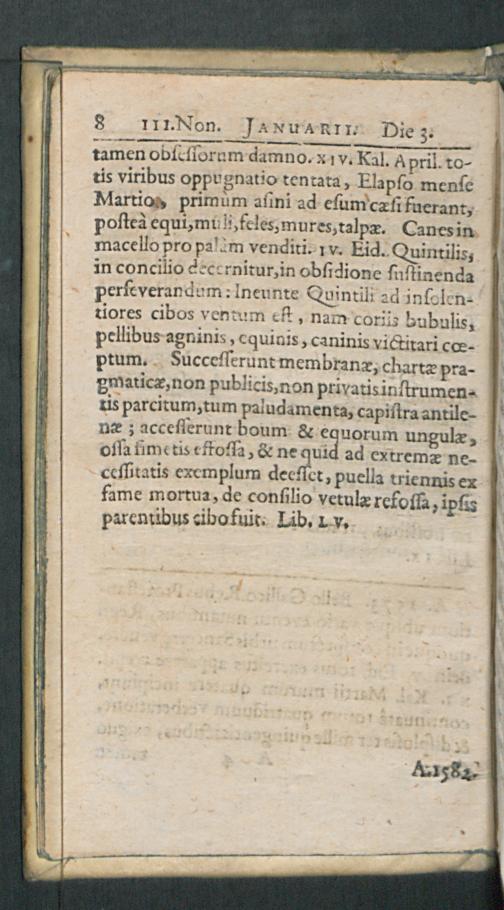 8 III.Non. JANUARII. Die 3.
tamen obsessorum damno. XIV. Kal. April. to-
tis viribus oppugnatio tentata, Elapso mense
Martio, primùm asini ad esum cæsi fuerant,
posteà equi, muli, feles, mures, talpæ. Canes in
macello pro palàm venditi. IV. Eid. Quintilis,
in concilio decernitur, in obsidione sustinenda
perseverandum: Ineunte Quintili ad insolen-
tiores cibos ventum est, nam coriis bubulis,
pellibus agninis, equinis, caninis victitari cœ-
ptum. Successerunt membranæ, chartæ pra-
gmaticæ, non publicis, non privatis instrumen-
tis parcitum, tum paludamenta, capistra antile-
næ; accesserunt boum & equorum ungulæ,
ossa fimetis effossa, & ne quid ad extremæ ne-
cessitatis exemplum deesset, puella triennis ex
fame mortua, de consilio vetulæ refossa, ipsis
parentibus cibo fuit. Lib. LV.
A. 1582.